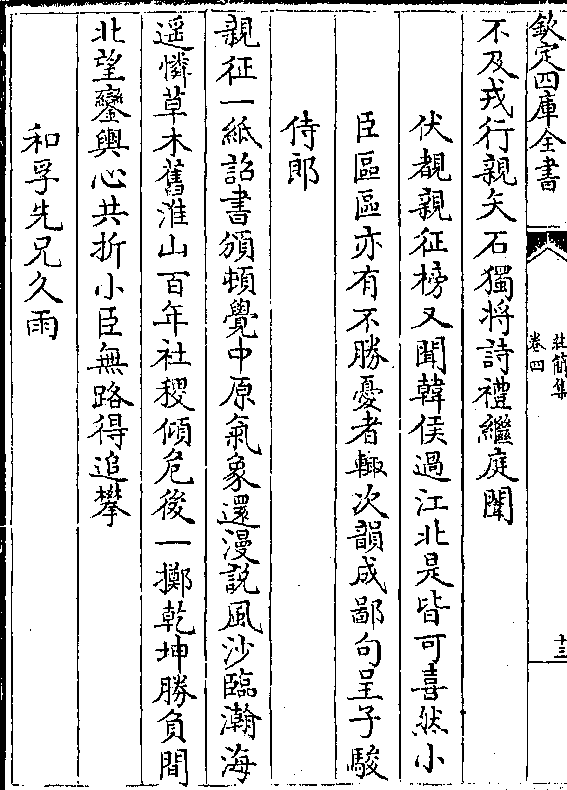 欽定四庫全書
莊簡集
卷四
十三
不及戎行親矢石獨將詩禮繼庭闈
伏覩親征榜又聞韓侯過江北是皆可喜然小
臣區區亦有不勝憂者輙次韻成鄙句呈子駿
侍郎
親征一紙詔書頒頓覺中原氣象還漫說風沙臨瀚海
遥憐草木舊淮山百年社稷傾危後一擲乾坤勝負間
北望鑾輿心共折小臣無路得追攀
和孚先兄久雨